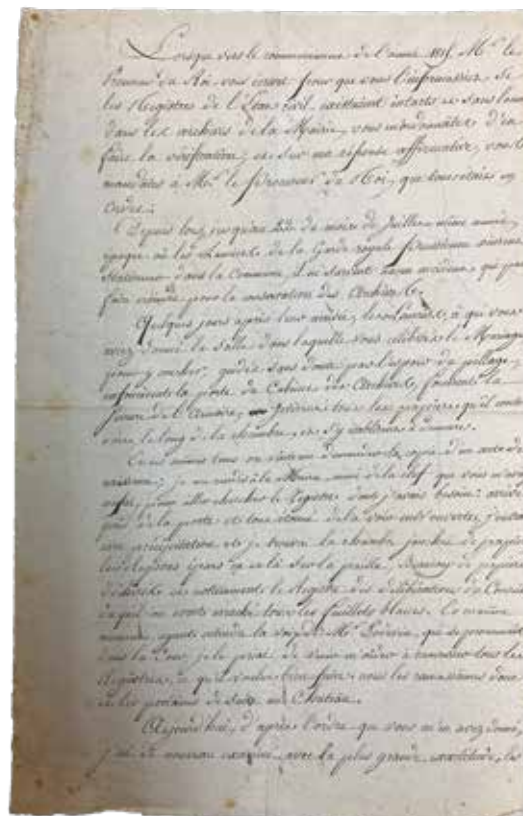 Lorsque vers le commencement de l'année 1815, Mr. le
Procureur du Roi vous écrivit pour que vous l'informassiez si
les Registres de l'Etat civil existaient intacts et sans
dans les archives de la Mairie, vous m'ordonnâtes d'en
faire la vérification, et sur ma réponse affirmative, vous
mandâtes à Mr. le Procureur du Roi, que tout était en
ordre.
Depuis lors, jusqu'au de mois de Juillet même année,
époque où les de la Garde royale prussienne vinrent
dans la Commune, il ne survint aucun qui put
faire craindre pour la conservation des Archives.
Quelques jours après leur arrivée, à qui vous
avez donné la salle dans laquelle vous célébrez les Mariages
pour y coucher, guidés sans doute par l'espoir du pillage,
enfoncèrent la porte du Cabinet des Archives, forcèrent la
serrure de l'Armoire, tous les papiers qu'il
le long de la chambre, et s'y à
on vint me demander la copie d'un acte de
naissance; je me rendis à la Mairie, muni de la clef que vous m'avez
pour aller chercher le Registre dont j'avais besoin: arrivé
près de la porte et tout étonné de la voir ouverte, j'entrai
avec précipitation et je trouvai la chambre jonchée de papiers
les Registres épars çà et là sur la paille, beaucoup de papiers
déchirés et notamment le Registre des délibérations du Conseil
duquel on avait arraché tous les feuillets blancs. Ce même
moment, ayant entendu la voix de Mr. qui se promenait
dans la Cour, je le priai de venir m'aider à ramasser tous les
Registres, ce qu'il voulut bien faire, nous les ramassâmes donc
et les portâmes de suite au Château.
Aujourd'hui, d'après l'ordre que vous m'en avez donné,
j'ai de nouveau examiné avec la plus grande exactitude, les